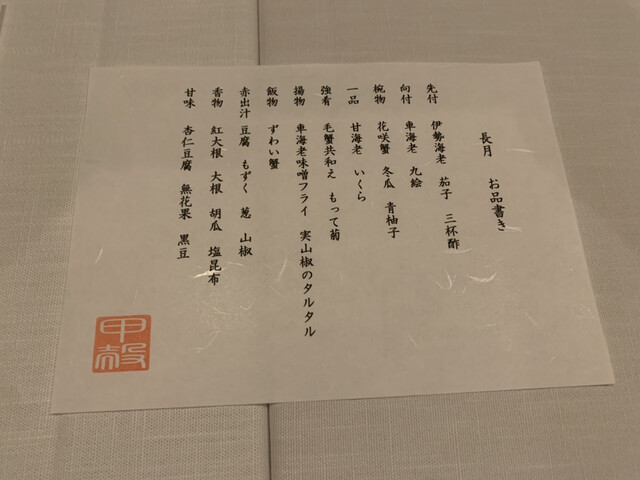 長月　お品書き
先付　伊勢海老　茄子　三杯酢
向付　車海老　九絵
椀物　花咲蟹　冬瓜　青柚子
一品　甘海老　いくら
強肴　毛蟹共和え　もって菊
揚物　車海老味噌フライ　実山椒のタルタル
飯物　ずわい蟹
赤出汁　豆腐　もずく　葱　山椒
香物　紅大根　大根　胡瓜　塩昆布
甘味　杏仁豆腐　無花果　黒豆
甲殻